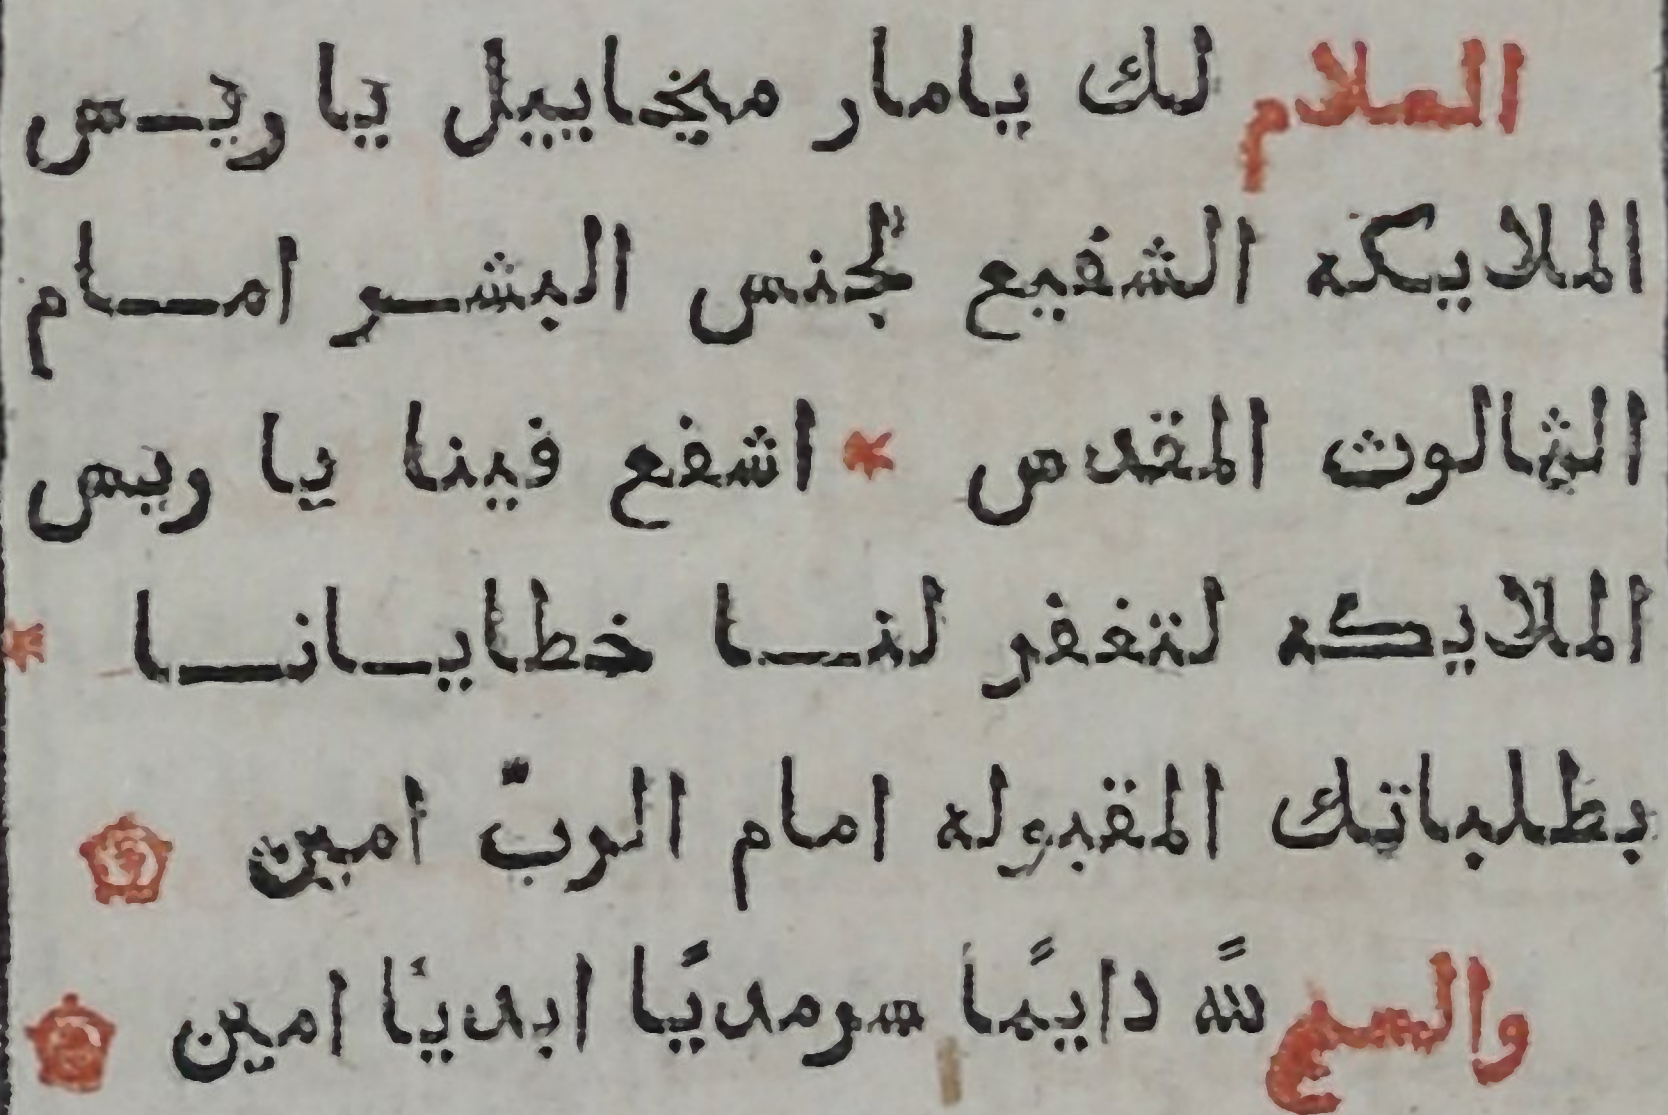 السلام لك يامار ميخاييل يا ريس
الملايكه الشفيع لجنس البشر امام
الثالوث المقدس * اشفع فينا يا ريس
الملايكه لتغفر لنا خطايانا *
بطلباتك المقبوله امام الربّ امين
والسبح للّٰه دايمًا سرمديًا ابديًا امين